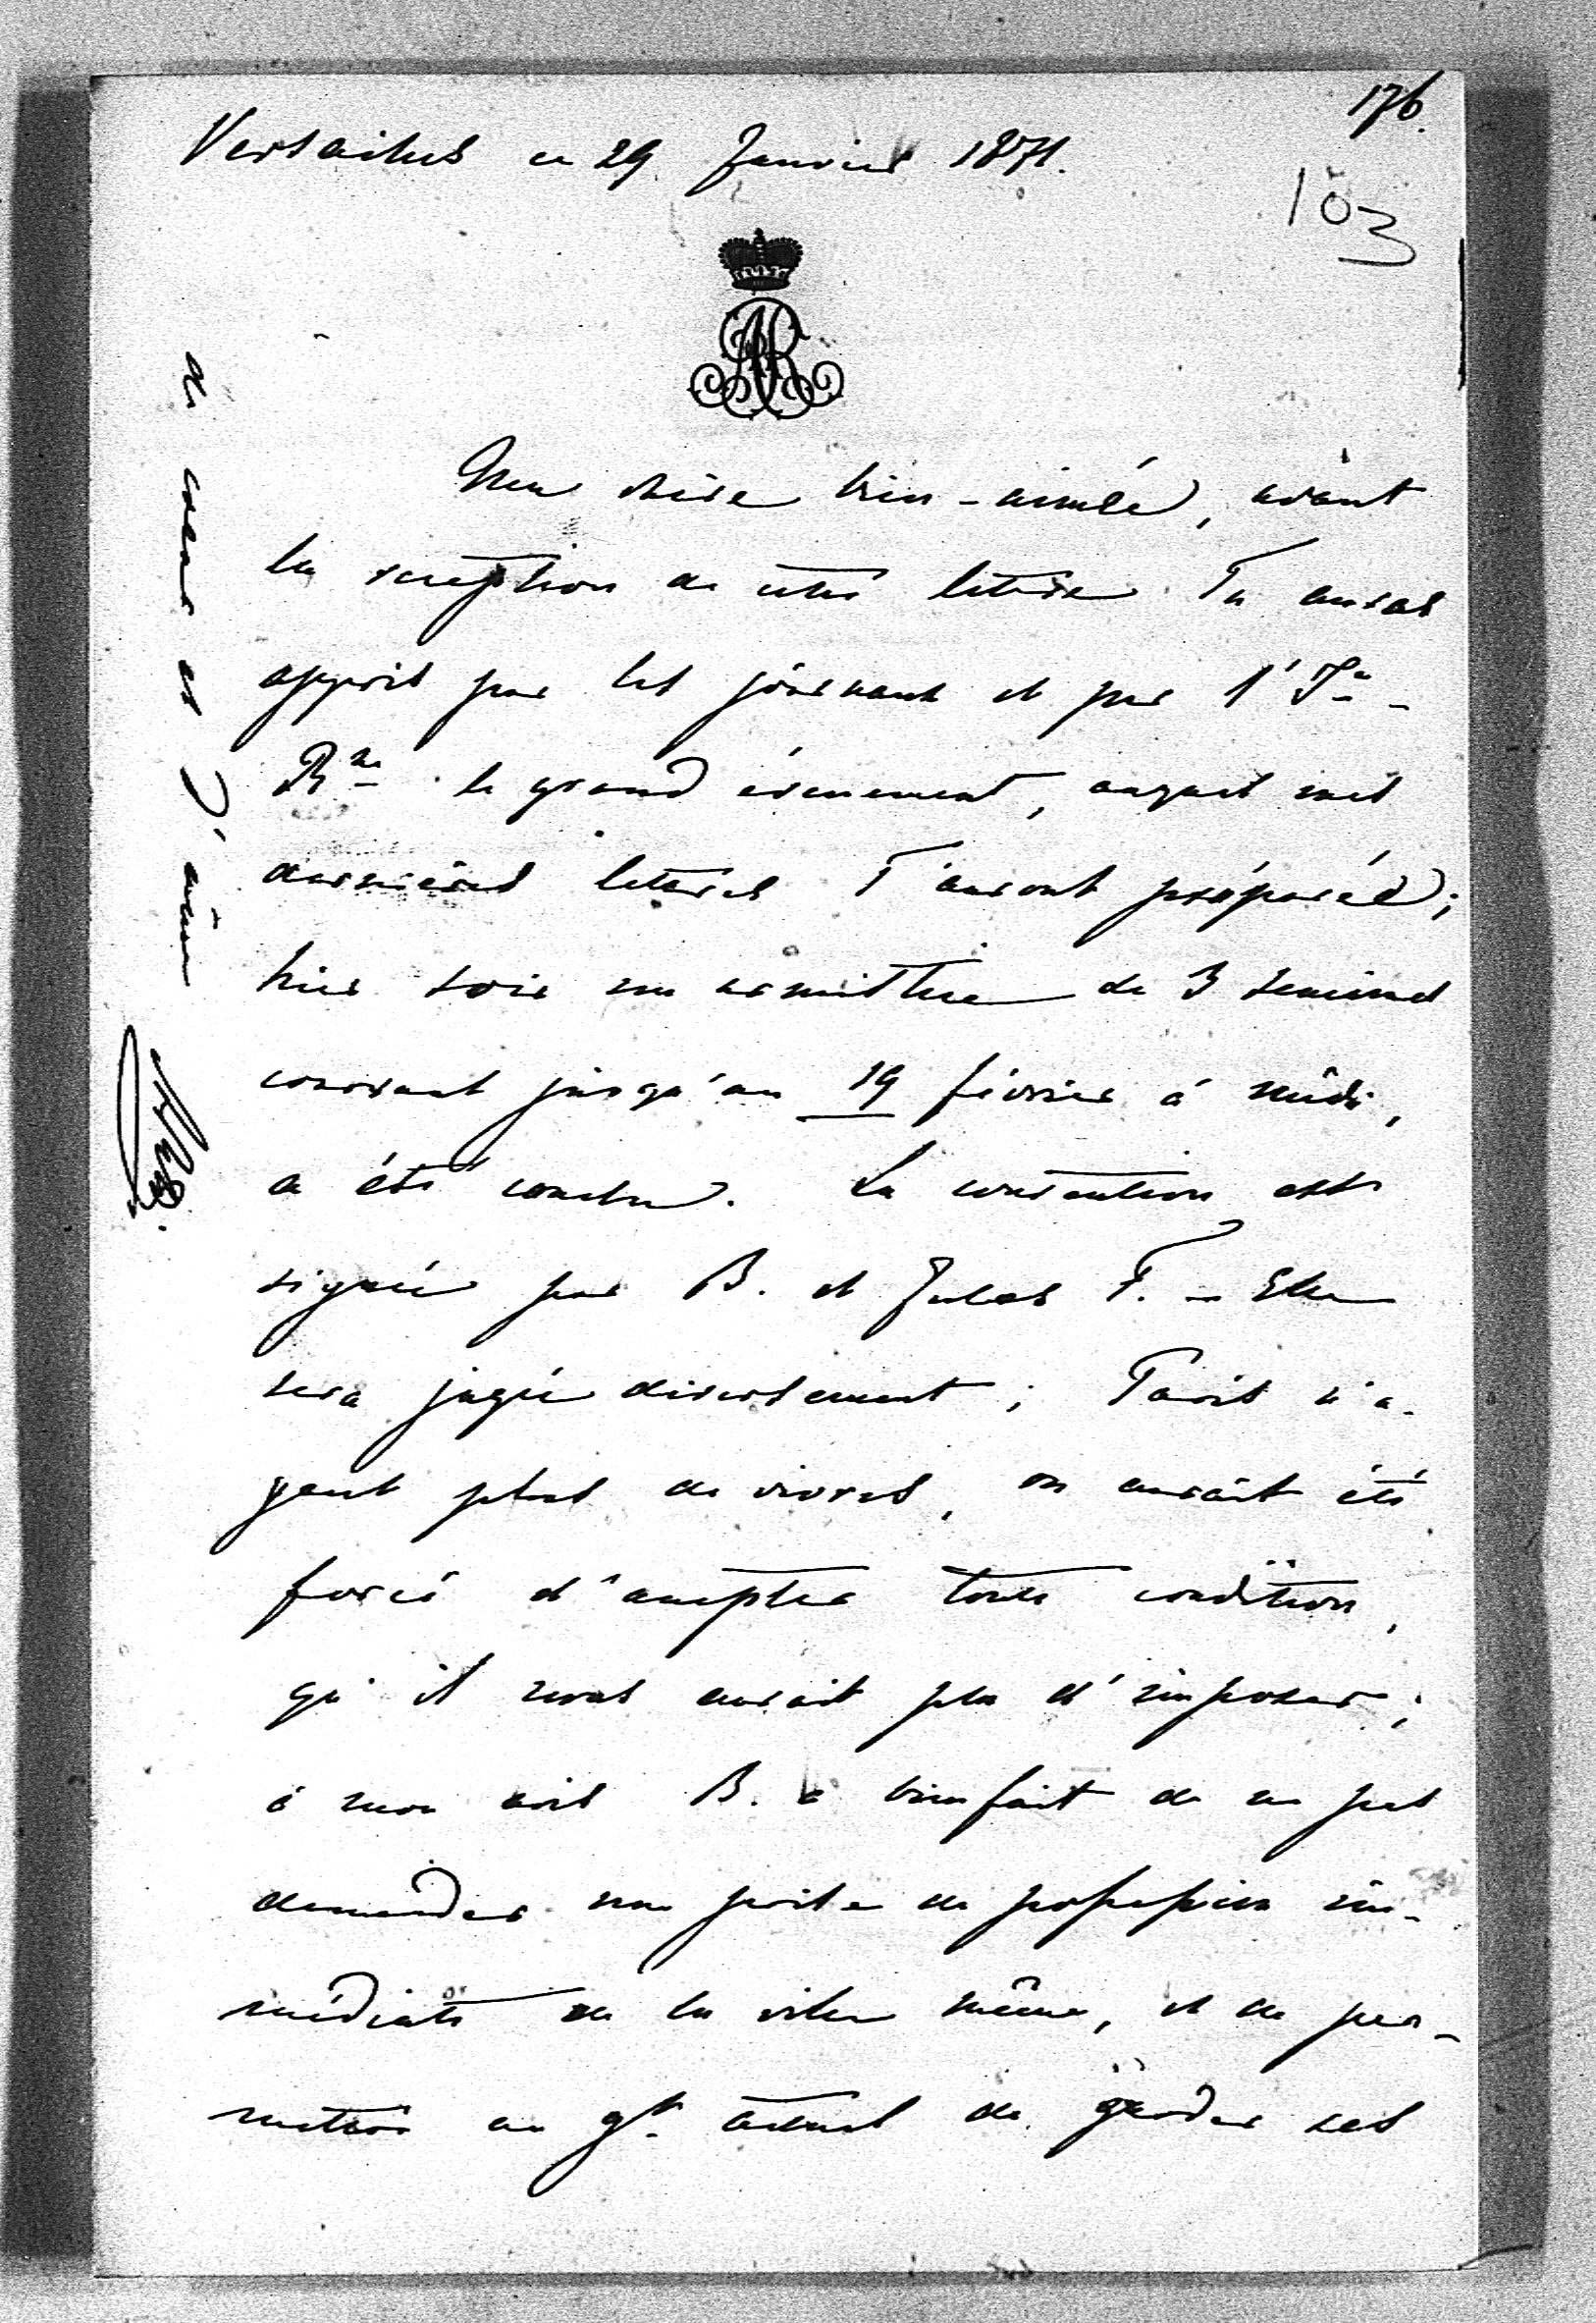 176.
Versailles ce 29 Janvier 1871.
103
Ma chère bien-aimée, avant
la reception de cette lettre Tu auras
appris par les journaux et par l'
le grand évenement, auquel mes
dernières lettres T'auront préparée;
hier soir un armistice de 3 semaines
courant jusqu'au 19 février à midi,
a été conclu. La convention est
signée par B. et Jules F. – Elle
sera jugée diversement; Paris n'a-
yant plus de vivres, on aurait été
forcé d'accepter toute condition,
qu'il nous aurait plu d'imposer;
à mon avis B. a bien fait de ne pas
demander une prise de possession im-
médiate de la ville même, et de per-
mettre au gt. actuel de garder ses
de coeur et d'âme